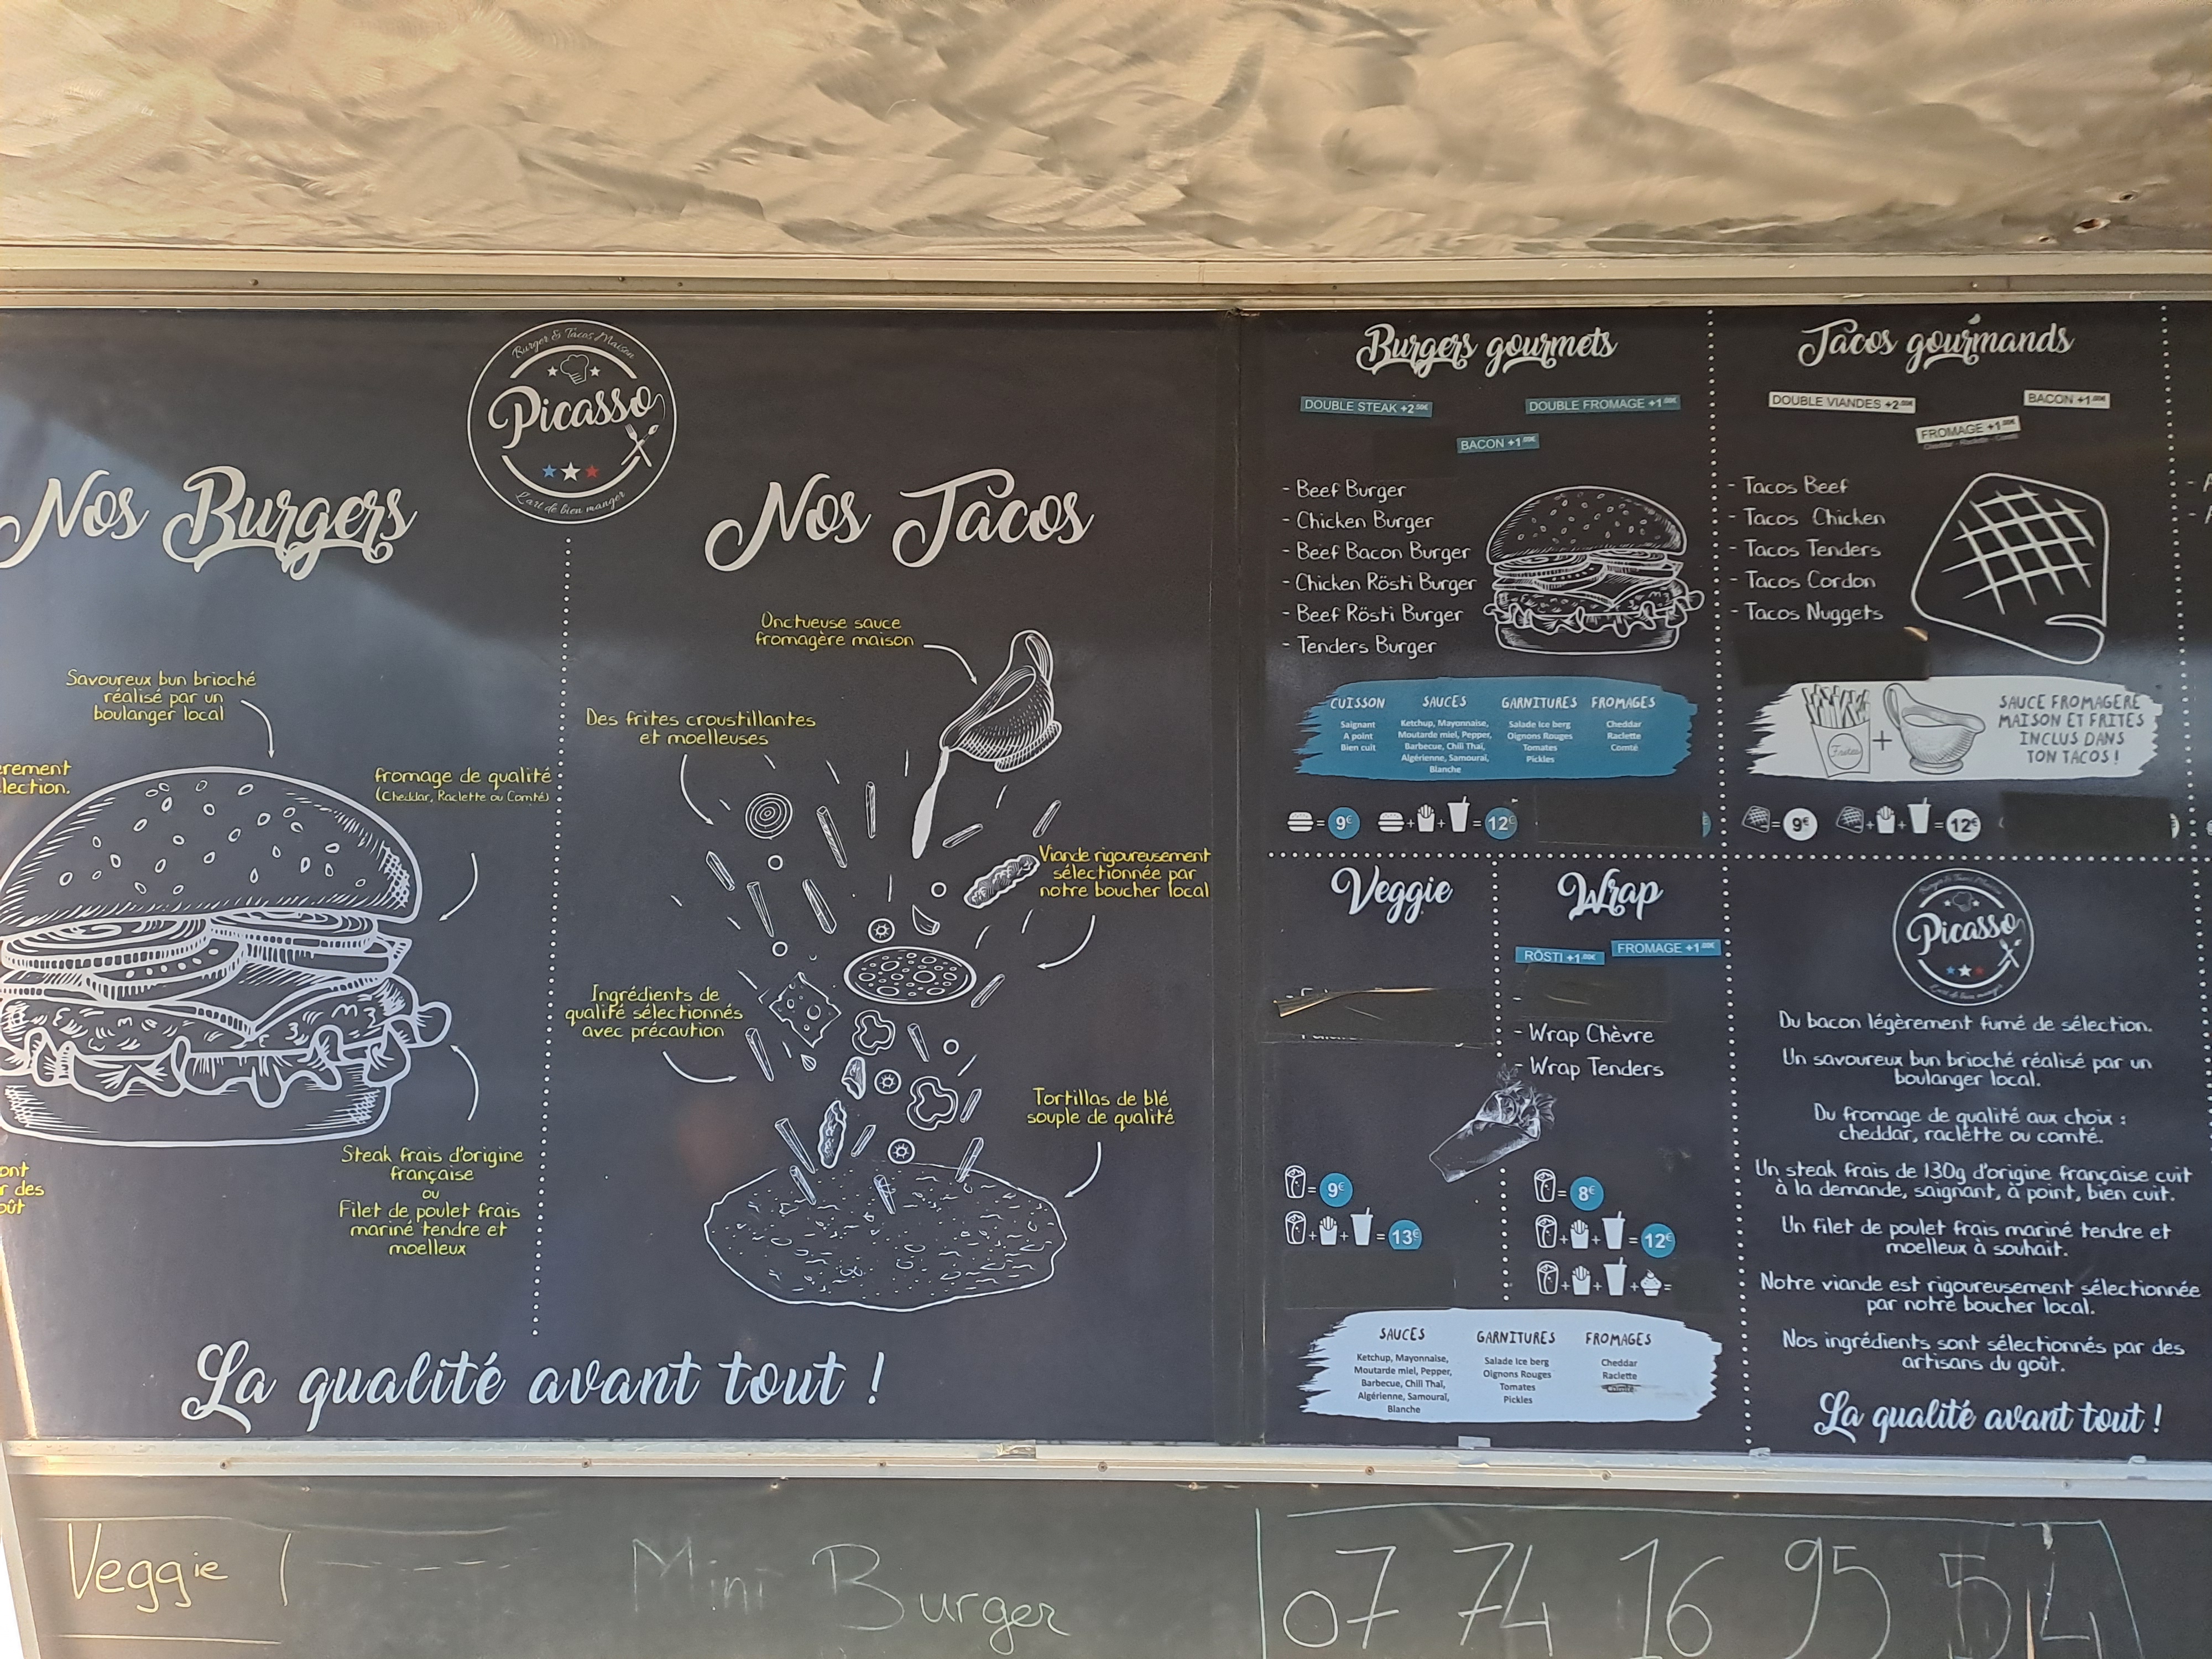 Burger & Tacos Maison
Picasso
L'art de bien manger
Nos Burgers
Savoureux bun brioché
réalisé par un
boulanger local
fromage de qualité
(Cheddar, Raclette ou Comté)
Steak frais d'origine
française
ou
Filet de poulet frais
mariné tendre et
moelleux
Nos Tacos
Onctueuse sauce
fromagère maison
Des frites croustillantes
et moelleuses
Viande rigoureusement
sélectionnée par
notre boucher local
Ingrédients de
qualité sélectionnés
avec précaution
Tortillas de blé
souple de qualité
La qualité avant tout !
Burgers gourmets
DOUBLE STEAK +2.50€
DOUBLE FROMAGE +1.00€
BACON +1.00€
- Beef Burger
- Chicken Burger
- Beef Bacon Burger
- Chicken Rösti Burger
- Beef Rösti Burger
- Tenders Burger
CUISSON
Saignant
A point
Bien cuit
SAUCES
Ketchup, Mayonnaise,
Moutarde miel, Pepper,
Barbecue, Chili Thaï,
Algérienne, Samouraï,
Blanche
GARNITURES
Salade Ice berg
Oignons Rouges
Tomates
Pickles
FROMAGES
Cheddar
Raclette
Comté
= 9€
+ + = 12€
Tacos gourmands
DOUBLE VIANDES +2.00€
BACON +1.00€
FROMAGE +1.00€
- Tacos Beef
- Tacos Chicken
- Tacos Tenders
- Tacos Cordon
- Tacos Nuggets
Frites
+
SAUCE FROMAGÈRE
MAISON ET FRITES
INCLUS DANS
TON TACOS !
= 9€
+ + = 12€
Veggie
= 9€
+ + = 13€
Wrap
RÖSTI +1.00€
FROMAGE +1.00€
- Wrap Chèvre
- Wrap Tenders
= 8€
+ + = 12€
+ + + =
SAUCES
Ketchup, Mayonnaise,
Moutarde miel, Pepper,
Barbecue, Chili Thaï,
Algérienne, Samouraï,
Blanche
GARNITURES
Salade Ice berg
Oignons Rouges
Tomates
Pickles
FROMAGES
Cheddar
Raclette
Burger & Tacos Maison
Picasso
L'art de bien manger
Du bacon légèrement fumé de sélection.
Un savoureux bun brioché réalisé par un
boulanger local.
Du fromage de qualité aux choix :
cheddar, raclette ou comté.
Un steak frais de 130g d'origine française cuit
à la demande, saignant, à point, bien cuit.
Un filet de poulet frais mariné tendre et
moelleux à souhait.
Notre viande est rigoureusement sélectionnée
par notre boucher local.
Nos ingrédients sont sélectionnés par des
artisans du goût.
La qualité avant tout !
Veggie
Mini Burger
07 74 16 95 54